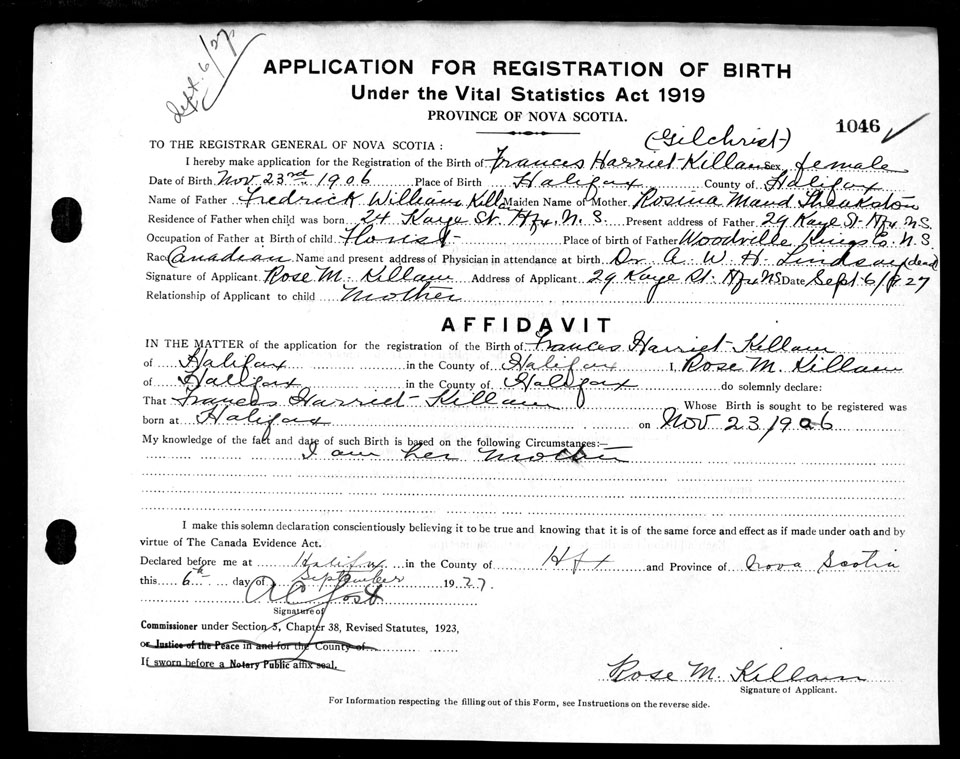 Sept. 6/27
APPLICATION FOR REGISTRATION OF BIRTH
Under the Vital Statistics Act 1919
PROVINCE OF NOVA SCOTIA.
1046
(Gilchrist)
TO THE REGISTRAR GENERAL OF NOVA SCOTIA :
I hereby make application for the Registration of the Birth of Frances Harriet Killam Sex female
Date of Birth Nov 23rd 1906 Place of Birth Halifax County of Halifax
Name of Father Fredrick William Killam Maiden Name of Mother Rosina Maud Theakston
Residence of Father when child was born 24 Kaye St. Hfx N.S. Present address of Father 29 Kaye St Hfx N.S.
Occupation of Father at Birth of child Florist Place of birth of Father Woodville Kings Co. N.S
Race Canadian Name and present address of Physician in attendance at birth Dr. A. W. H. Lindsay (dead)
Signature of Applicant Rose M. Killam Address of Applicant 29 Kaye St. Hfx NS Date Sept 6/27
Relationship of Applicant to child Mother
AFFIDAVIT
IN THE MATTER of the application for the registration of the Birth of Frances Harriet Killam
of Halifax in the County of Halifax I, Rose M. Killam
of Halifax in the County of Halifax do solemnly declare:
That Frances Harriet Killam Whose Birth is sought to be registered was
born at Halifax on Nov 23/1906
My knowledge of the fact and date of such Birth is based on the following Circumstances:—
I am her Mother
I make this solemn declaration conscientiously believing it to be true and knowing that it is of the same force and effect as if made under oath and by
virtue of The Canada Evidence Act.
Declared before me at Halifax in the County of Hfx and Province of Nova Scotia
this 6th day of September 1927.
Signature of
Commissioner under Section 5, Chapter 38, Revised Statutes, 1923,
or Justice of the Peace in and for the County of
If sworn before a Notary Public affix seal.
Rose M. Killam
Signature of Applicant.
For Information respecting the filling out of this Form, see Instructions on the reverse side.